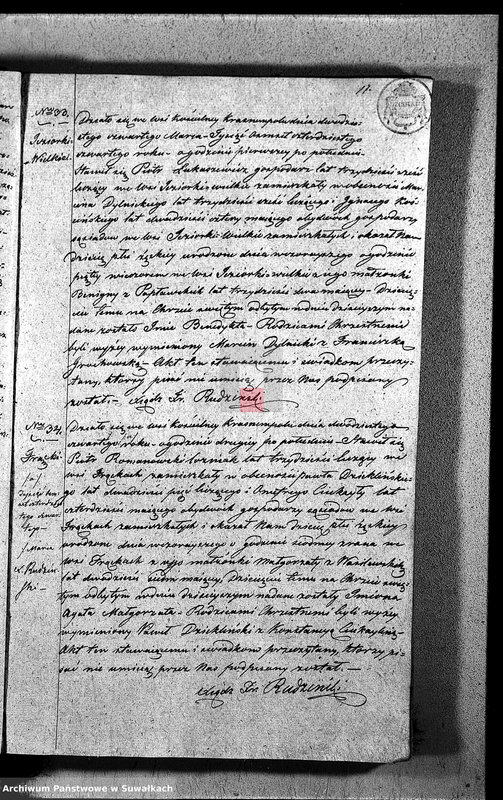 11.
No 33.
Jeziorki
Wielkie.
Działo się we wsi kościelnej Krasnempolu dnia dwudzie-
stego czwartego Marca Tysiąc Osmset czterdziestego
czwartego roku o godzinie pierwszej po południu.
Stawił się Piotr Łukaszewicz gospodarz lat trzydzieści sześć
liczący we wsi Jeziorki wielkie zamieszkały w obecności Mar-
cina Dylnickiego lat trzydzieści sześć liczącego i Ignacego
lat dwadzieścia cztery mającego obydwóch gospodarzy
sąsiadów we wsi Jeziorki Wielkie zamieszkałych i okazał Nam
Dziecię płci żeńskiej urodzone dnia wczorajszego o godzinie
piątej wieczorem we wsi Jeziorki wielkie z jego małżonki
Benigny z lat trzydzieści dwa mającej. Dziecię-
ciu temu na Chrzcie świętym odbytym w dniu dzisiejszym na-
dane zostało Imie Benedykta. Rodzicami Chrzestnemi
byli wyżej wymieniony Marcin Dylnicki z Franciszką
Grochowską. Akt ten stawającemu i świadkom przeczy-
tany, którzy pisać nie umieją przez Nas podpisany
został. Xiądz Fr. Rudziński
No 34.
Frącki
/a/
Tysiąc Osm-
set czterdzies-
tego czwar-
tego
/Marca
X. Rudziń-
ski
Działo się we wsi kościelnej Krasnempolu dnia dwudziestego
czwartego roku o godzinie drugiej po południu. Stawił się
Piotr Romanowski lat trzydzieści liczący we
wsi Frąckach zamieszkały w obecności Pawła Dzieklińskie-
go lat dwadzieścia pięć liczącego i lat
czterdzieści mającego obydwóch gospodarzy sąsiadów we wsi
Frąckach zamieszkałych i okazał Nam Dziecię płci żeńskiej
urodzone dnia wczorajszego o godzinie siódmej zrana we
wsi Frąckach z jego małżonki Małgorzaty z
lat dwadzieścia siedm mającej. Dziecięciu temu na Chrzcie świę-
tym odbytym w dniu dzisiejszym nadane zostały Imiona
Agata Małgorzata. Rodzicami Chrzestnemi byli wyżej
wymieniony Paweł Dziekliński z Konstancyą
Akt ten stawającemu i świadkom przeczytany, którzy pi-
sać nie umieją przez Nas podpisany został.
Xiądz Fr. Rudziński
Archiwum Państwowe w Suwałkach